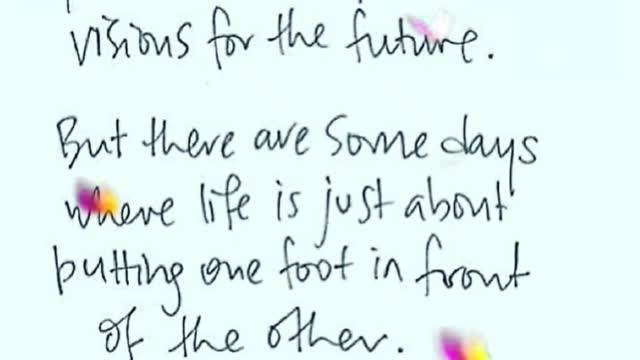 visions for the future.
But there are some days
where life is just about
putting one foot in front
of the other.